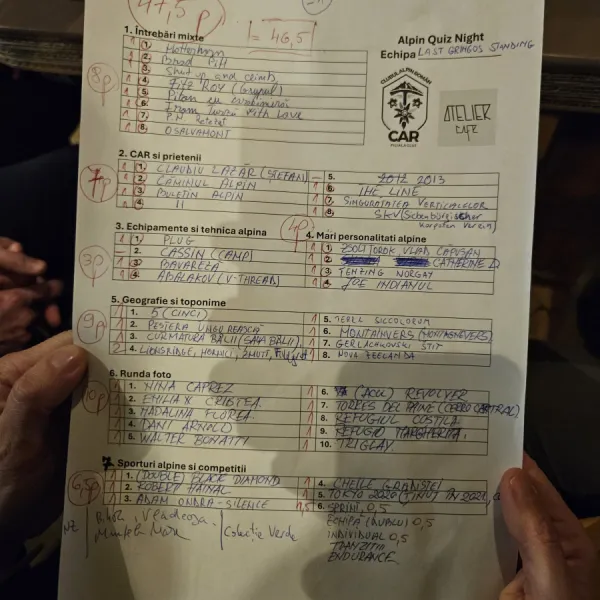 47,5 p
= 46,5
Alpin Quiz Night
Echipa LAST GRINGOS STANDING
CLUBUL ALPIN ROMÂN
CAR
ATELIER
CAFE
1. Întrebări mixte
8p
1 1. Matterhorn
1 2. Brad Pitt
1 3. Shut up and climb
1 4. FITZ ROY (Grupul)
1 5. Piton cu carabinieră
1 6. From Russia With Love
1 7. P.N. Retezat
1 8. OSALVAMONT
2. CAR si prietenii
7p
1 1. CLAUDIU LAZĂR (ȘTEFAN)
1 2. CĂMINUL ALPIN
1 3. BULETIN ALPIN
1 4. 11
– 5. 2012 2013
1 6. THE LINE
1 7. SINGURĂTATEA VERTICALELOR
1 8. SKV (Siebenbürgischer Karpaten Verein)
3. Echipamente si tehnica alpina
3p
1 1. PLUG
– 2. CASSIN (CAMP)
1 3. BAVAREZĂ
1 4. ABALAKOV (V-THREAD)
4. Mari personalitati alpine
4p
1 1. ZSOLT TOROK VLAD CAPUSAN
1 2. CATHERINE D
1 3. TENZING NORGAY
1 4. JOE INDIANUL
5. Geografie si toponime
9p
1 1. 5 (CINCI)
1 2. PEȘTERA UNGUREASCĂ
1 3. CURMĂTURA BĂLII (ȘAUA BĂLII)
2 4. LIONSRIDGE, HÖRNLI, ZMUTT, Furggen
1 5. TERRA SICCOLORUM
1 6. MONTANVERS (MONTAGNEVERS)
1 7. GERLACHOVSKÝ STIT
1 8. NOUA ZEELANDĂ
6. Runda foto
10p
1 1. NINA CAPREZ
1 2. EMILIAX CRISTEA
1 3. MĂDĂLINA FLOREA
1 4. DANI ARNOLD
1 5. WALTER BONATTI
1 6. (ACUL) REVOLVER
1 7. TORRES DEL PAINE (CERRO CENTRAL)
1 8. REFUGIUL COSTILA
1 9. REFUGIO MARGHERITA
1 10. TRIGLAV
7 Sporturi alpine si competitii
6,5p
1 1. (DOUBLE) BLACK DIAMOND
1 2. ROBERT HAINAL
1 3. ADAM ONDRA - SILENCE
1 4. CHEILE GRĂDIȘTEI
1 5. TOKYO 2020 (ȚINUT ÎN 2021)
1,5 6. SPRINT 0,5
ECHIPĂ (DUALU) 0,5
INDIVIDUAL 0,5
TRANZITII
ENDURANCE
Colectie Verde